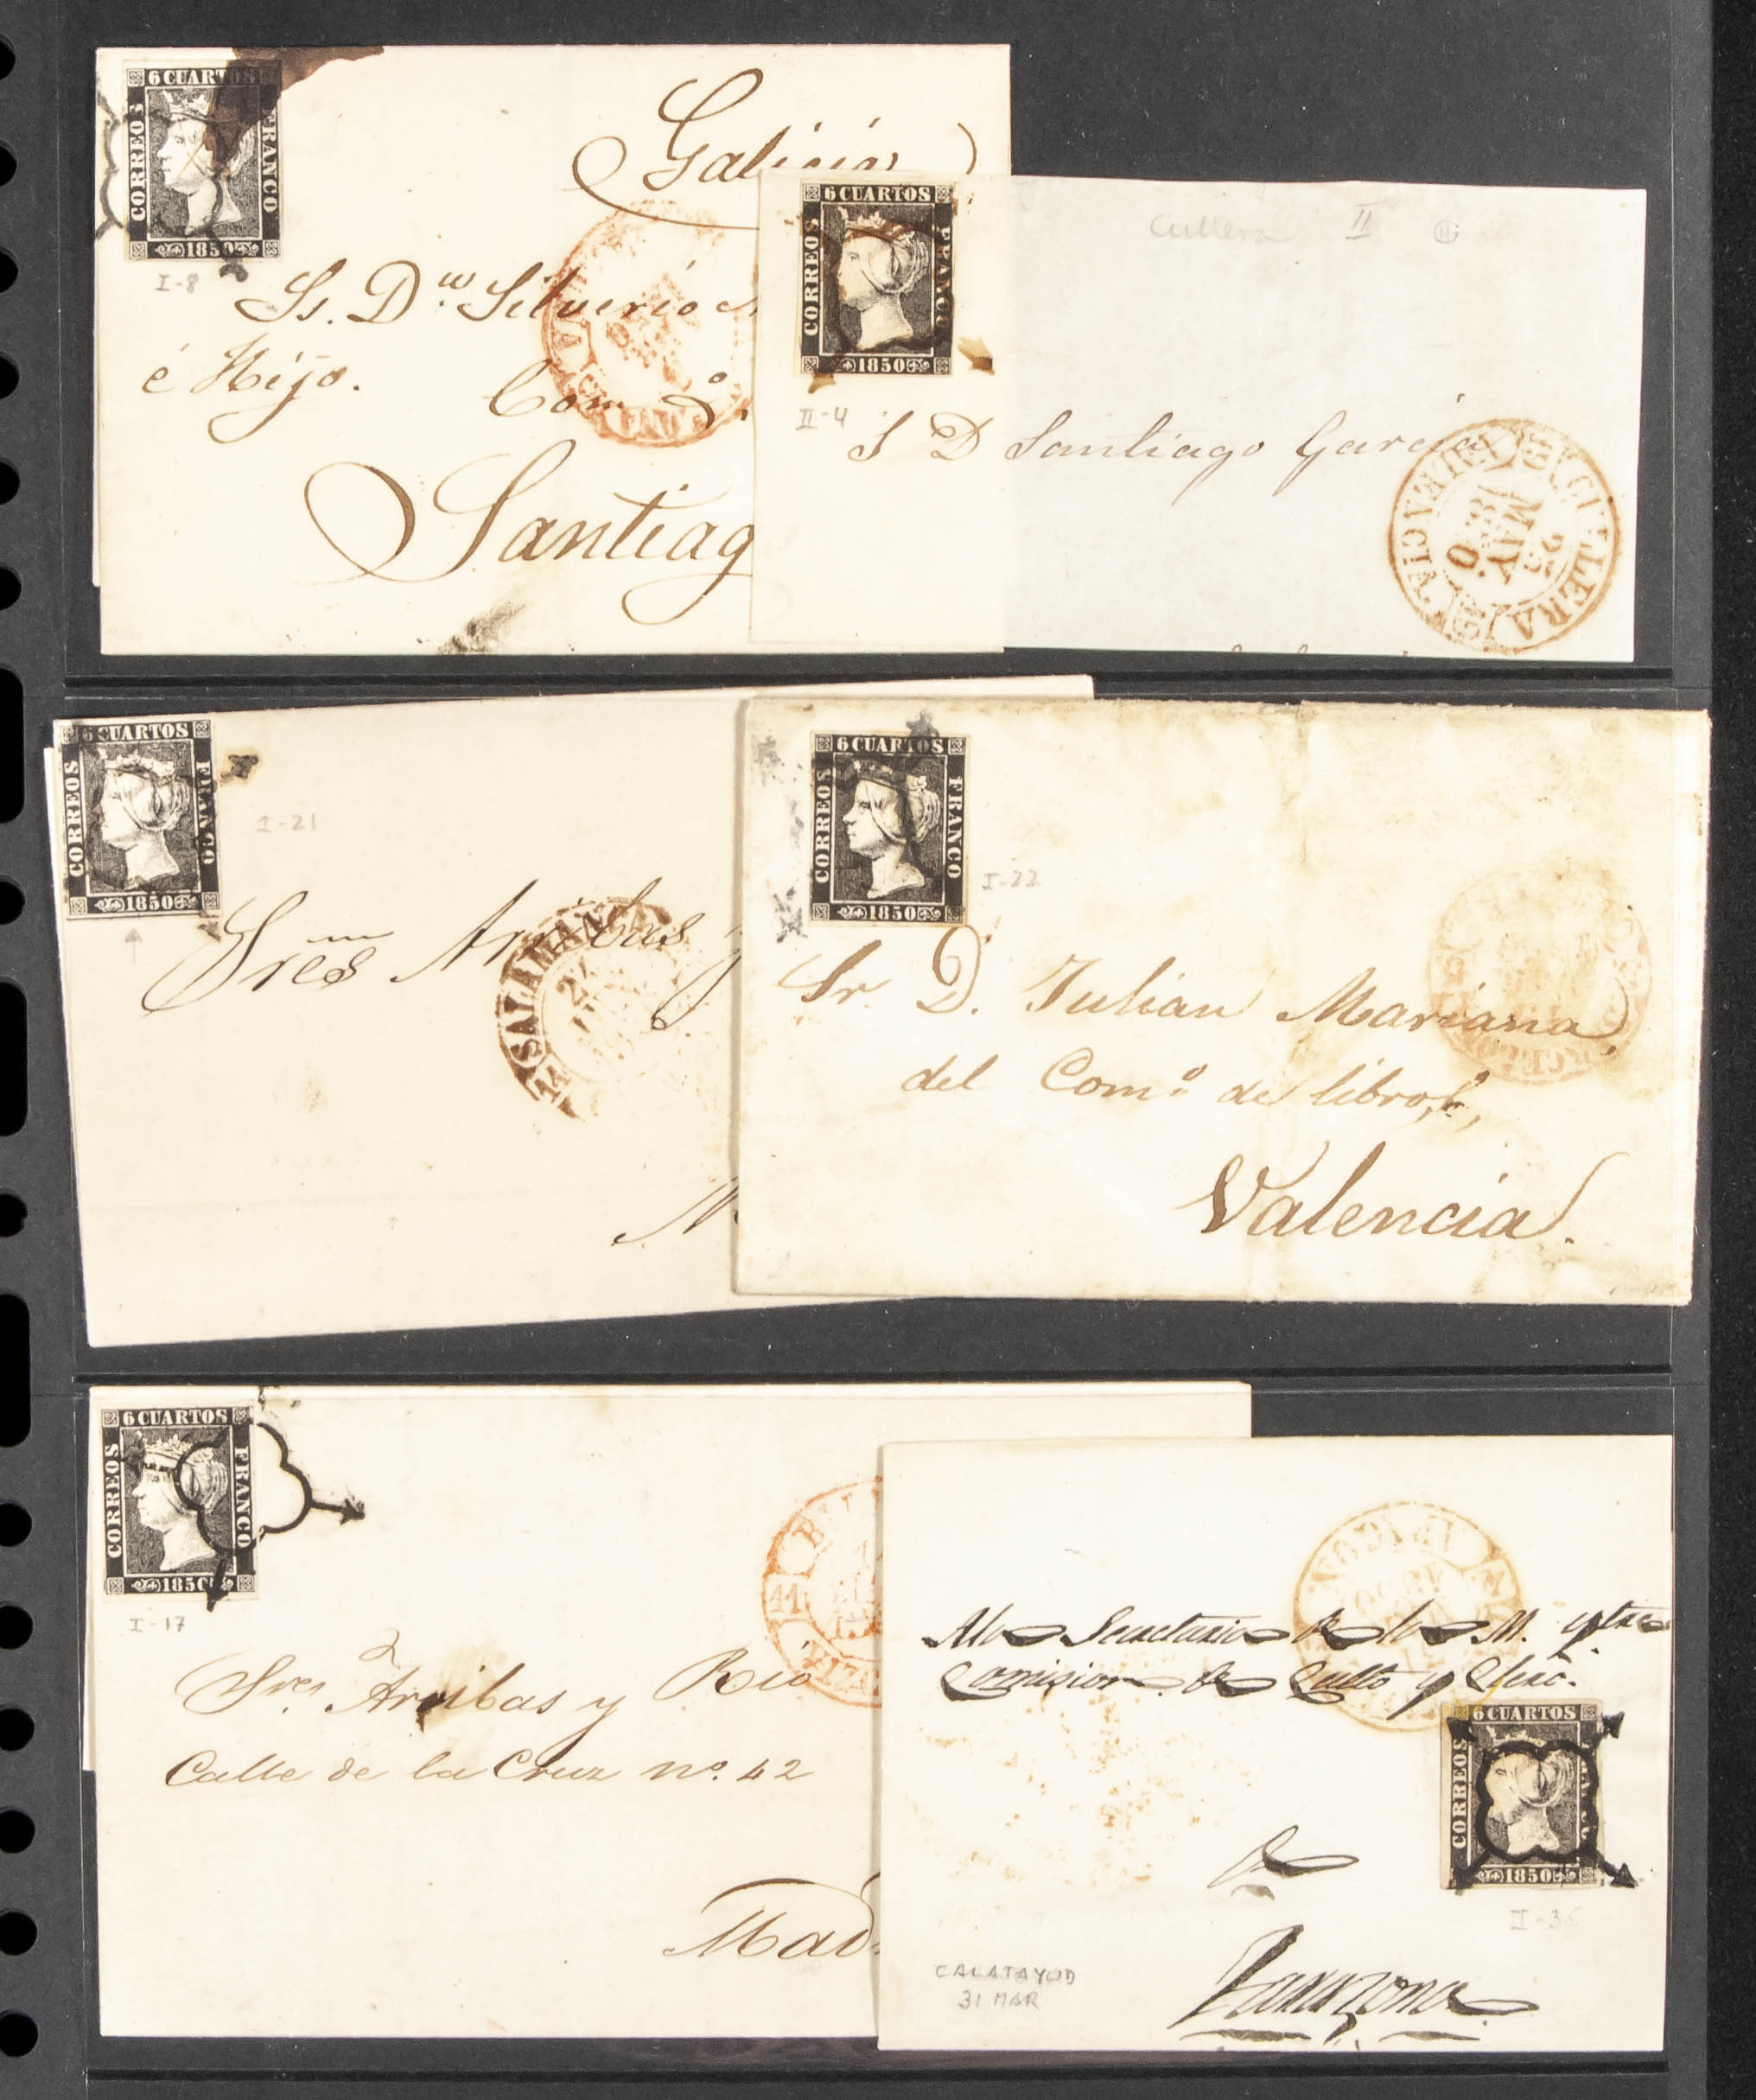 6 CUARTOS
CORREOS
FRANCO
1850
I-8
Galicia
Ss. Dn Silverio
é Hijo. Como
Santiag
6 CUARTOS
CORREOS
FRANCO
1850
II-4
Cullera II
S D Santiago Garcia
CULLERA
25
MAY
1850
VALENCIA
6 CUARTOS
CORREOS
FRANCO
1850
I-21
SALAMANCA
Sres Arribas y
6 CUARTOS
CORREOS
FRANCO
1850
I-22
Sr. D. Julian Mariana
del Como de libros,
Valencia.
6 CUARTOS
CORREOS
FRANCO
1850
I-17
Sres Arribas y Rio
Calle de la Cruz no. 42
Mad
ARAGON
Comision de Culto y Clero.
6 CUARTOS
CORREOS
1850
CALATAYUD
31 MAR
Tarazona